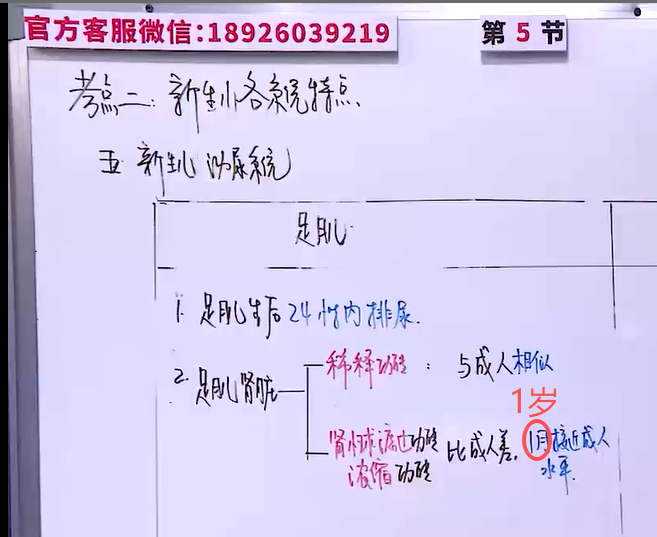 官方客服微信:18926039219
第 5 节
考点二:新生儿各系统特点.
五 新生儿 泌尿系统
足月儿
1. 足月儿生后24小时内排尿.
2. 足月儿肾脏
稀释功能 : 与成人相似
1岁
肾小球滤过功能 比成人差. 1月接近成人
浓缩功能 水平.